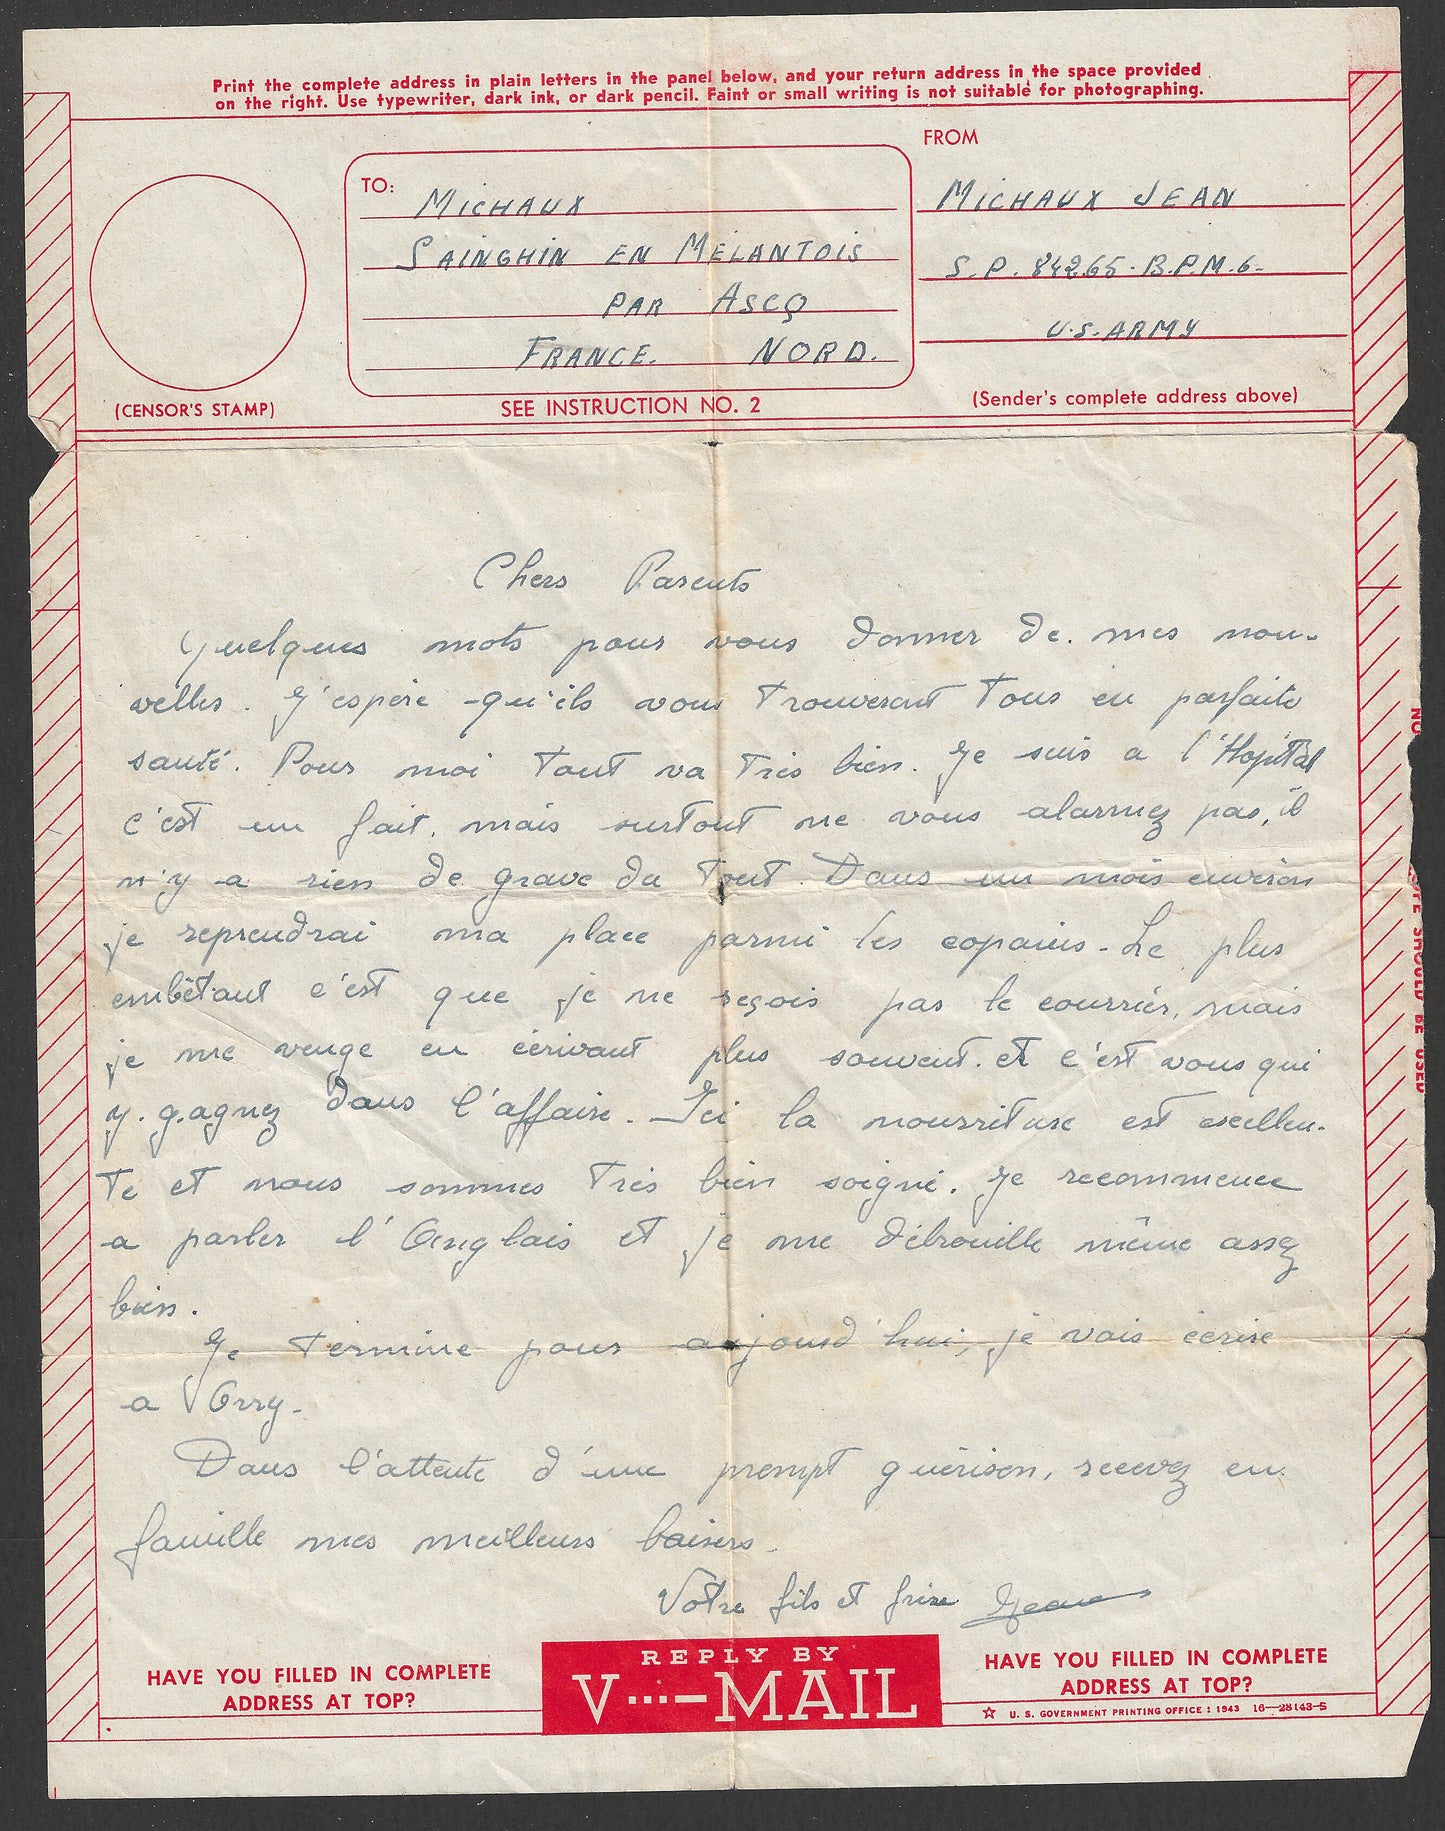 Print the complete address in plain letters in the panel below, and your return address in the space provided
on the right. Use typewriter, dark ink, or dark pencil. Faint or small writing is not suitable for photographing.
FROM
TO:
MICHAUX
SAINGHIN EN MELANTOIS
PAR ASCQ
FRANCE. NORD.
MICHAUX JEAN
S.P. 84265. B.P.M. 6.
U.S. ARMY
(CENSOR'S STAMP)
SEE INSTRUCTION NO. 2
(Sender's complete address above)
Chers Parents
Quelques mots pour vous donner de mes nou-
velles. J'espère qu'ils vous trouveront tous en parfaite
santé. Pour moi tout va très bien. Je suis a l'Hopital
c'est un fait, mais surtout ne vous alarmez pas, il
n'y a rien de grave du tout. Dans un mois environ
je reprendrai ma place parmi les copains. Le plus
embêtant c'est que je ne reçois pas le courrier, mais
je me venge en écrivant plus souvent. et c'est vous qui
y gagnez dans l'affaire. Ici la nourriture est excellen-
te et nous sommes très bien soigné. Je recommence
a parler l'Anglais et je me débrouille même assez
bien.
Je termine pour aujourd'hui, je vais écrire
a Orry.
Dans l'attente d'une prompt guérison, recevez en
famille mes meilleurs baisers.
Votre fils et frère Jean
HAVE YOU FILLED IN COMPLETE
ADDRESS AT TOP?
REPLY BY
V···—MAIL
HAVE YOU FILLED IN COMPLETE
ADDRESS AT TOP?
☆ U. S. GOVERNMENT PRINTING OFFICE : 1943 16—28143-5
NO
SHOULD BE USED